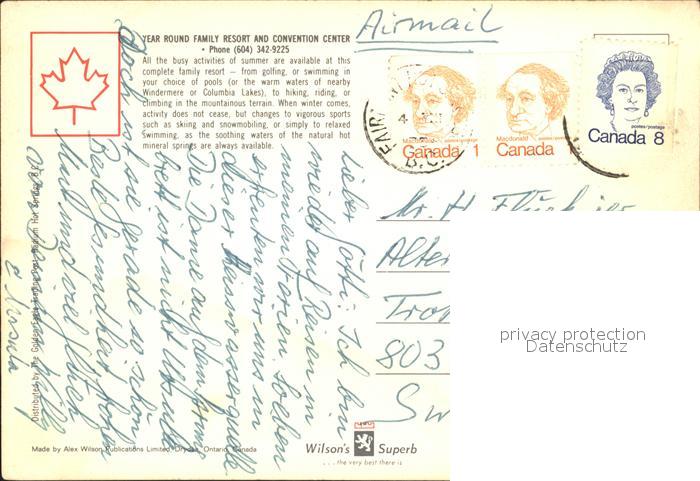 YEAR ROUND FAMILY RESORT AND CONVENTION CENTER
• Phone (604) 342-9225
All the busy activities of summer are available at this
complete family resort — from golfing, or swimming in
your choice of pools (or the warm waters of nearby
Windermere or Columbia Lakes), to hiking, riding, or
climbing in the mountainous terrain. When winter comes,
activity does not cease, but changes to vigorous sports
such as skiing and snowmobiling, or simply to relaxed
swimming, as the soothing waters of the natural hot
mineral springs are always available.
Airmail
Macdonald postes/postage
Canada 1
Macdonald postes/postage
Canada
postes/postage
Canada 8
FAIR
4
B.C.
Lieber Götti: Ich bin
wieder auf Reisen in
meinen Ferien. Soeben
erfreuten wir uns in
dieser Heisswasserquelle
Die Dame auf dem Sprung
brett ist nicht Ursula
doch ist sie gerade so schön
Recht Gesundheit
Mut und viel
von
& Ursula
Mr. H. Flück
Alte
Tro
803
Sw
privacy protection
Datenschutz
Distributed by The Golden
Made by Alex Wilson Publications Limited, Dryden, Ontario, Canada
Wilson's Superb
... the very best there is